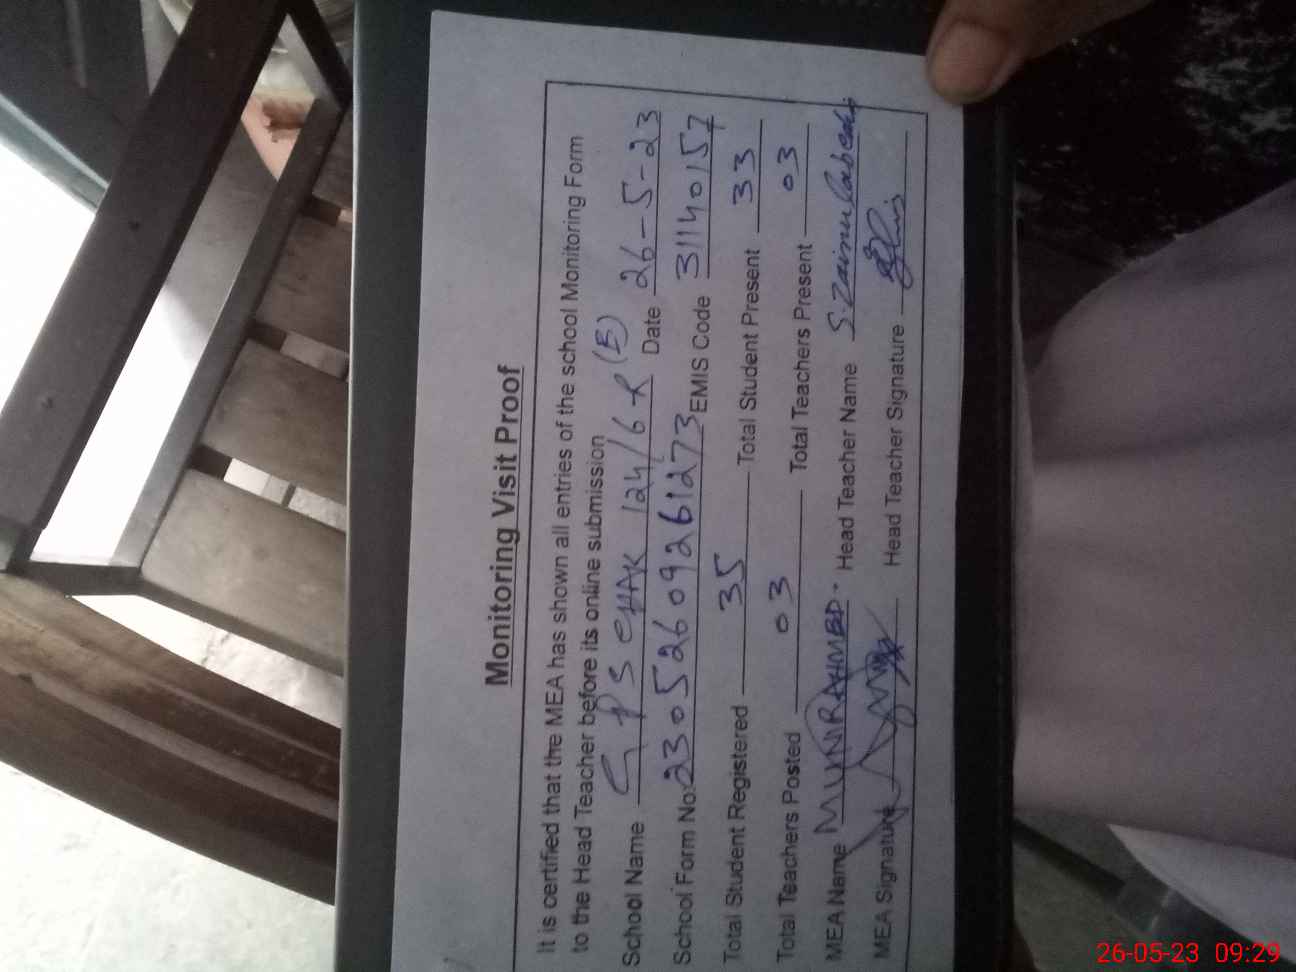 Monitoring Visit Proof
It is certified that the MEA has shown all entries of the school Monitoring Form
to the Head Teacher before its online submission
School Name GPS CHAK 124/6-R (B) Date 26-5-23
School Form No: 2305260926 1273 EMIS Code 31140157
Total Student Registered 35 Total Student Present 33
Total Teachers Posted 03 Total Teachers Present 03
MEA Name MUNIR AHMED. Head Teacher Name S. Zainulabedin
MEA Signature Head Teacher Signature
26-05-23 09:29